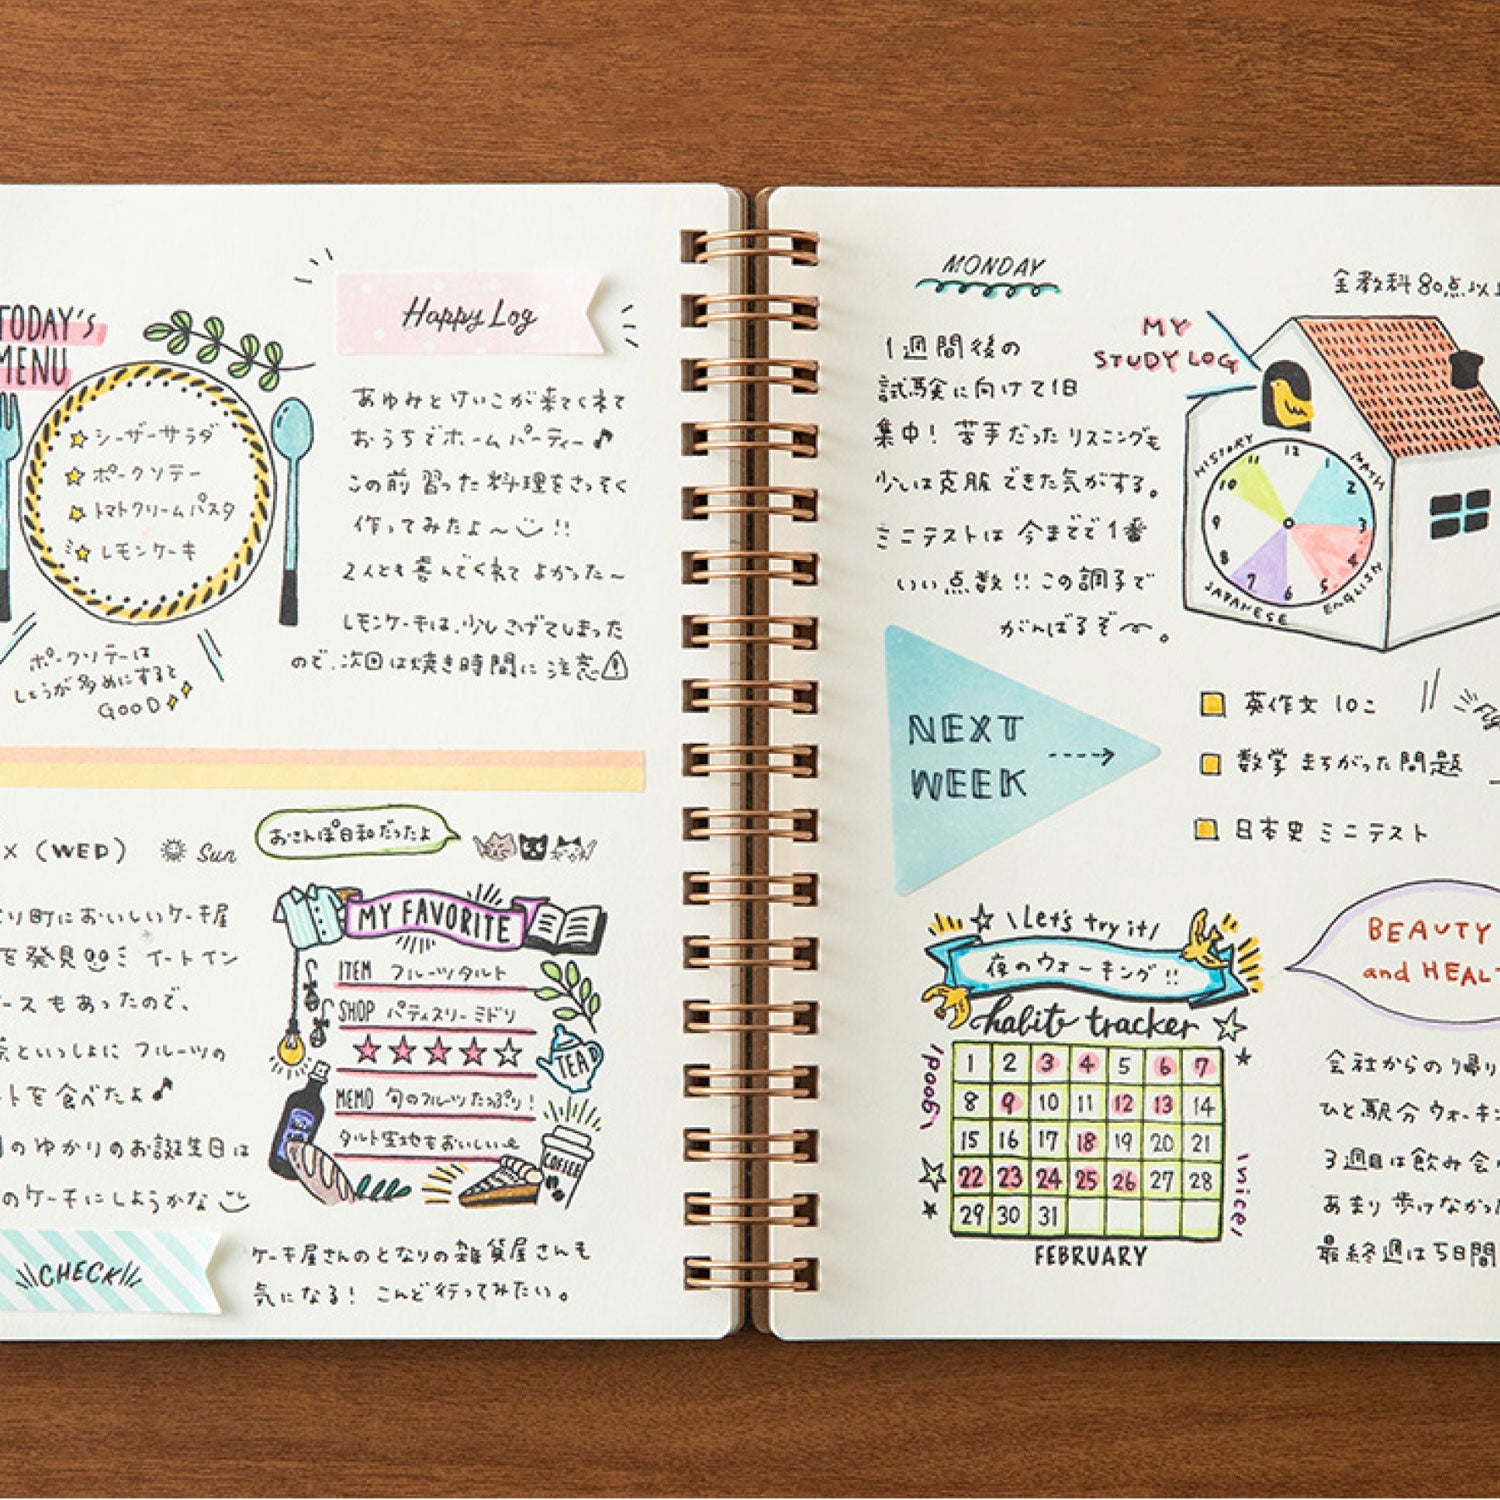 TODAY'S
MENU
シーザーサラダ
ポークソテー
トマトクリームパスタ
レモンケーキ
ポークソテーは
しょうが多めにすると
GOOD
Happy Log
あゆみとけいこが来てくれて
おうちでホームパーティー♪
この前習った料理をさっそく
作ってみたよ〜!!
2人とも喜んでくれてよかった〜
レモンケーキは、少しこげてしまった
ので、次回は焼き時間に注意
x (WED)
Sun
おさんぽ日和だったよ
り町においしいケーキ屋
を発見 イートイン
ースもあったので、
茶といっしょにフルーツの
ルトを食べたよ♪
のゆかりのお誕生日は
のケーキにしようかな
MY FAVORITE
ITEM フルーツタルト
SHOP パティスリーミドリ
★★★★☆
TEA
MEMO 旬のフルーツたっぷり!
タルト生地もおいしい
COFFEE
CHECK
ケーキ屋さんのとなりの雑貨屋さんも
気になる! こんど行ってみたい。
MONDAY
1週間後の
試験に向けて1日
集中! 苦手だったリスニングも
少しは克服できた気がする。
ミニテストは今までで1番
いい点数!! この調子で
がんばるぞ〜。
MY
STUDY LOG
全教科80点以上
HISTORY
MATH
ENGLISH
JAPANESE
12
1
2
3
4
5
6
7
8
9
10
11
NEXT
WEEK
英作文 10こ
数学 まちがった問題
日本史 ミニテスト
\Let's try it/
夜のウォーキング!!
habit tracker
/good\
\nice/
1 2 3 4 5 6 7
8 9 10 11 12 13 14
15 16 17 18 19 20 21
22 23 24 25 26 27 28
29 30 31
FEBRUARY
BEAUTY
and HEALT
会社からの帰り
ひと駅分ウォーキ
3週目は飲み会
あまり歩けなかっ
最終週は5日間